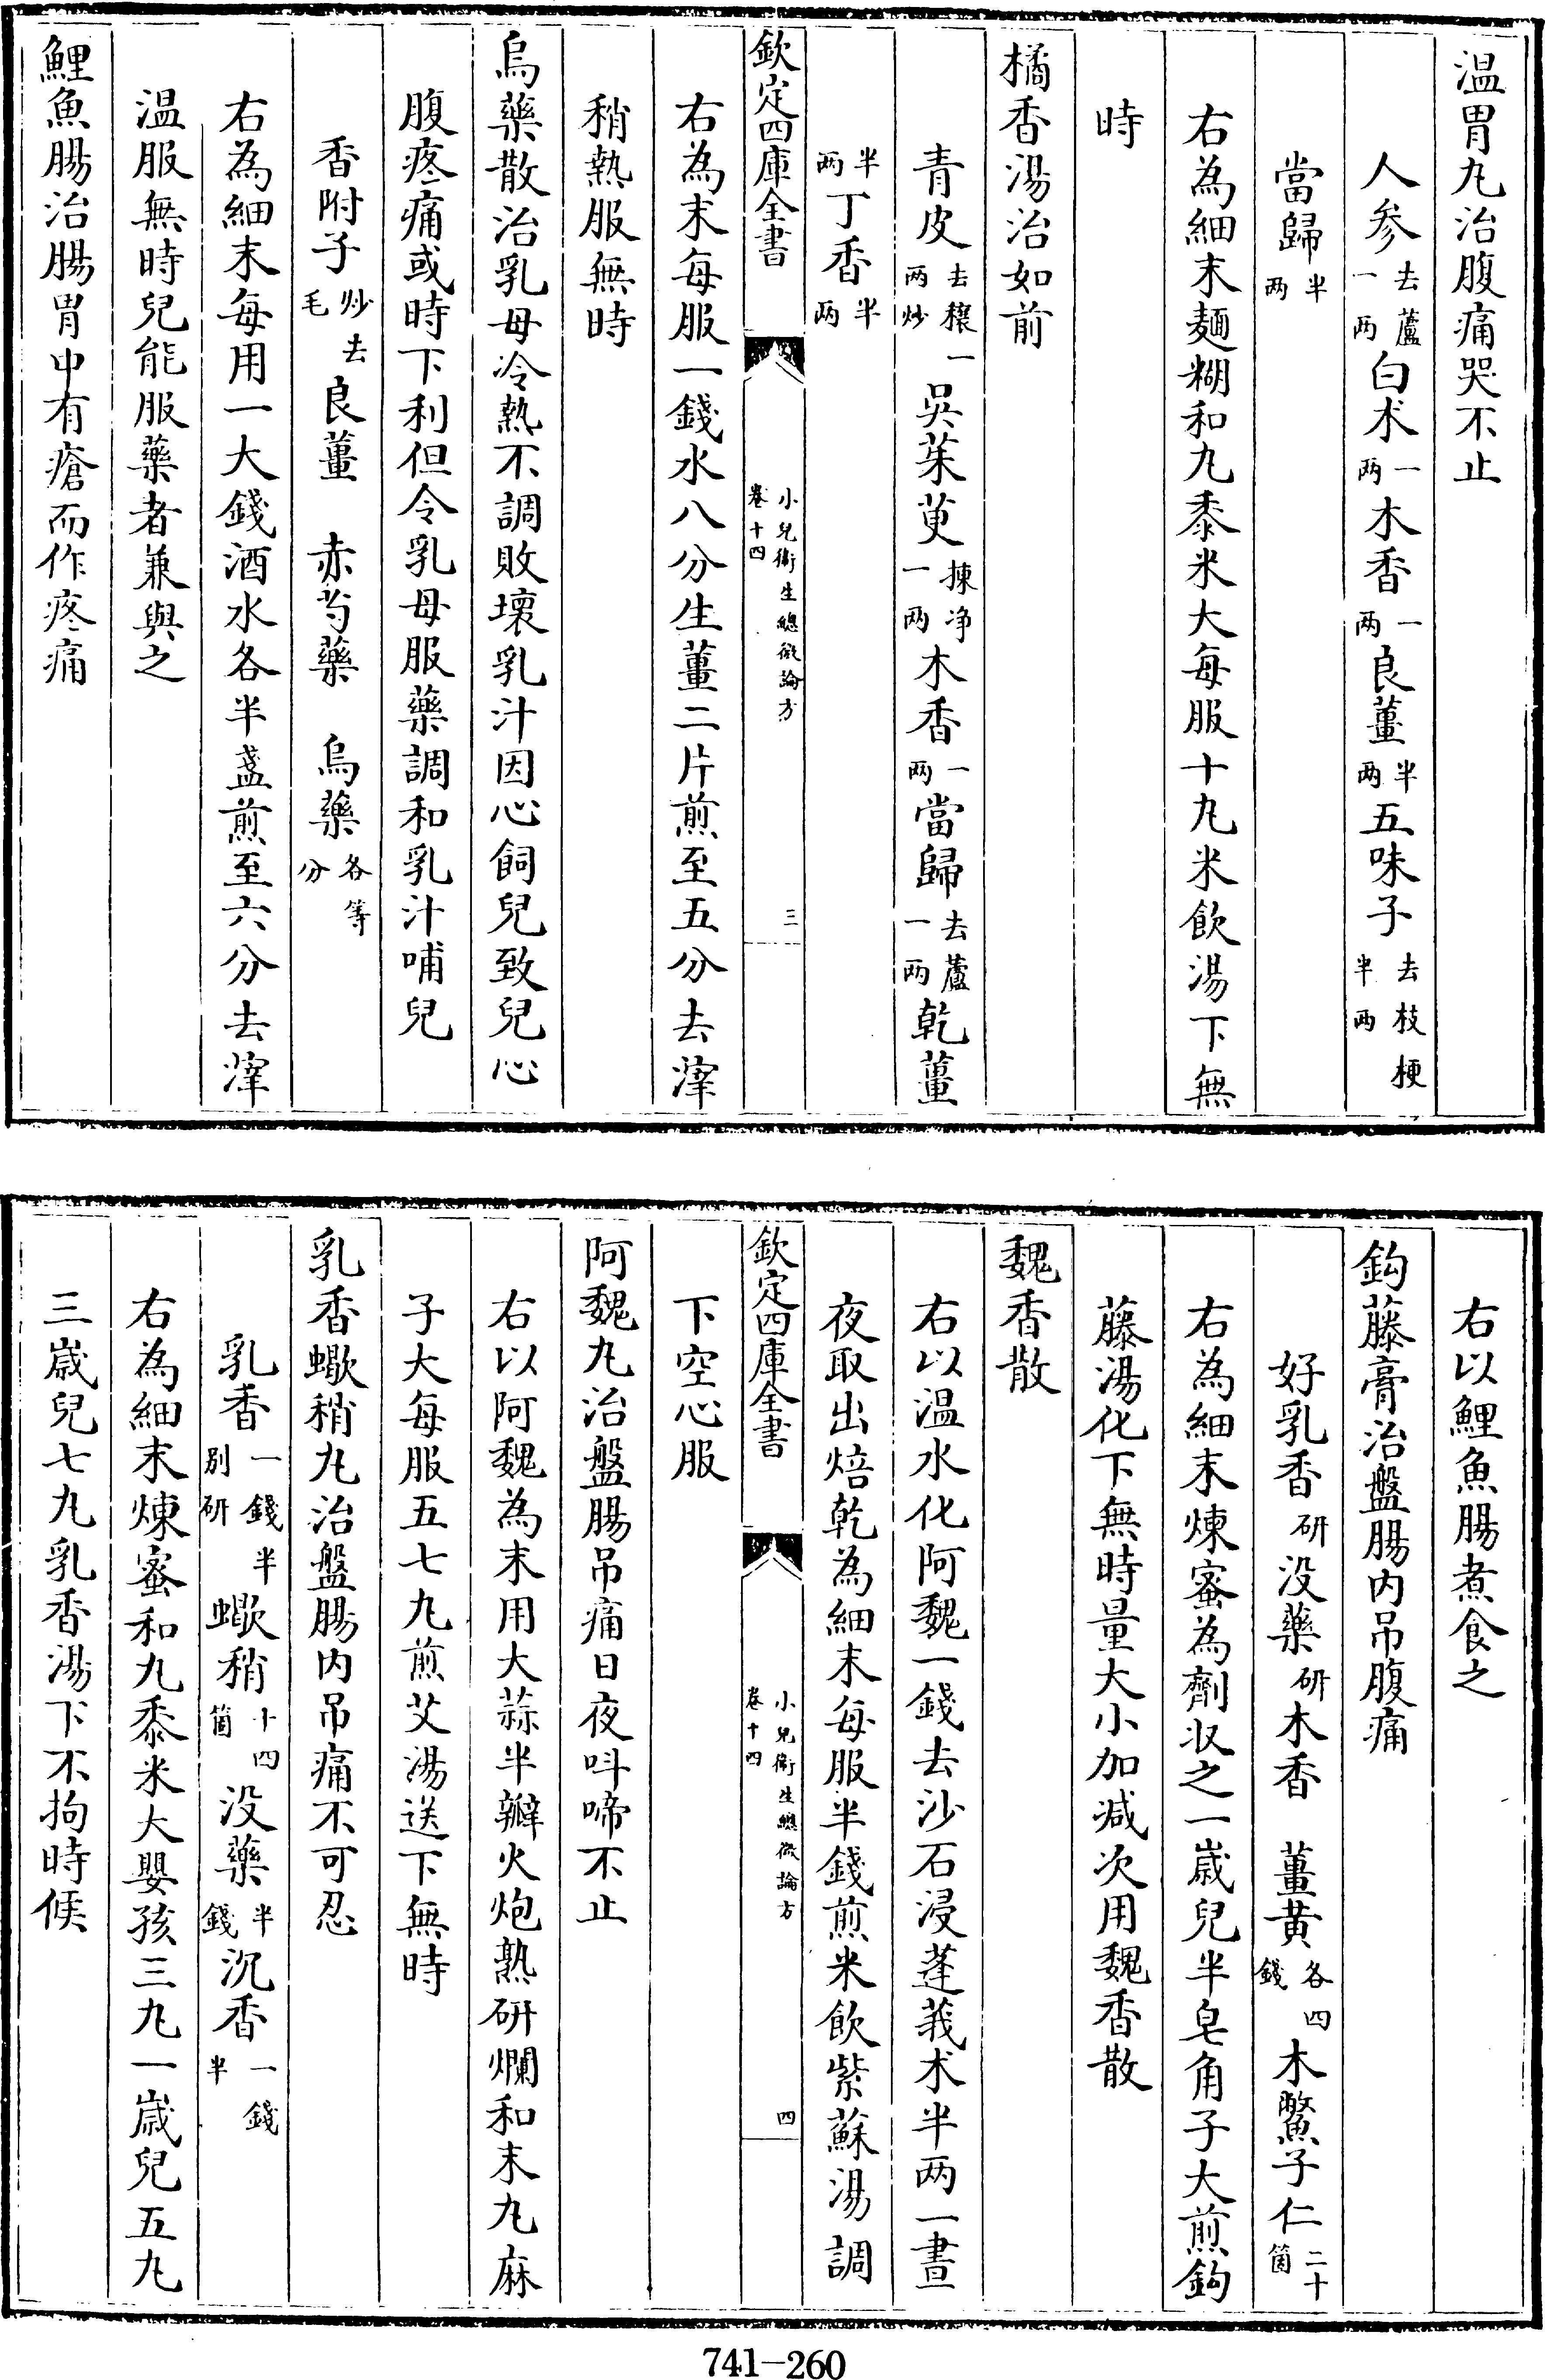 温胃丸治腹痛哭不止
人參去蘆一两白术一两木香一两良薑半两五味子去枝梗半两
當歸半两
右為細末麵糊和丸黍米大每服十丸米飲湯下無
時
橘香湯治如前
青皮去穰一两炒吳茱萸揀净一两木香一两當歸去蘆一两乾薑
半两丁香半两
欽定四庫全書
小兒衛生總微論方
卷十四
三
右為末每服一錢水八分生薑二片煎至五分去滓
稍熱服無時
烏藥散治乳母冷熱不調敗壞乳汁因心飼兒致兒心
腹疼痛或時下利但令乳母服藥調和乳汁哺兒
香附子炒去毛良薑 赤芍藥 烏藥各等分
右為細末每用一大錢酒水各半盞煎至六分去滓
温服無時兒能服藥者兼與之
鯉魚腸治腸胃中有瘡而作疼痛
右以鯉魚腸煮食之
鈎藤膏治盤腸内吊腹痛
好乳香研没藥研木香 薑黄各四錢木鱉子仁二十箇
右為細末煉蜜為劑収之一歲兒半皂角子大煎鈎
藤湯化下無時量大小加减次用魏香散
魏香散
右以温水化阿魏一錢去沙石浸蓬莪术半两一晝
夜取出焙乾為細末每服半錢煎米飲紫蘇湯調
欽定四庫全書
小兒衛生總微論方
卷十四
四
下空心服
阿魏丸治盤腸吊痛日夜呌啼不止
右以阿魏為末用大蒜半瓣火炮熟研爛和末丸麻
子大每服五七丸煎艾湯送下無時
乳香蠍稍丸治盤腸内吊痛不可忍
乳香一錢半别研蠍稍十四箇没藥半錢沉香一錢半
右為細末煉蜜和丸黍米大嬰孩三丸一歲兒五丸
三歲兒七丸乳香湯下不拘時候
741-260